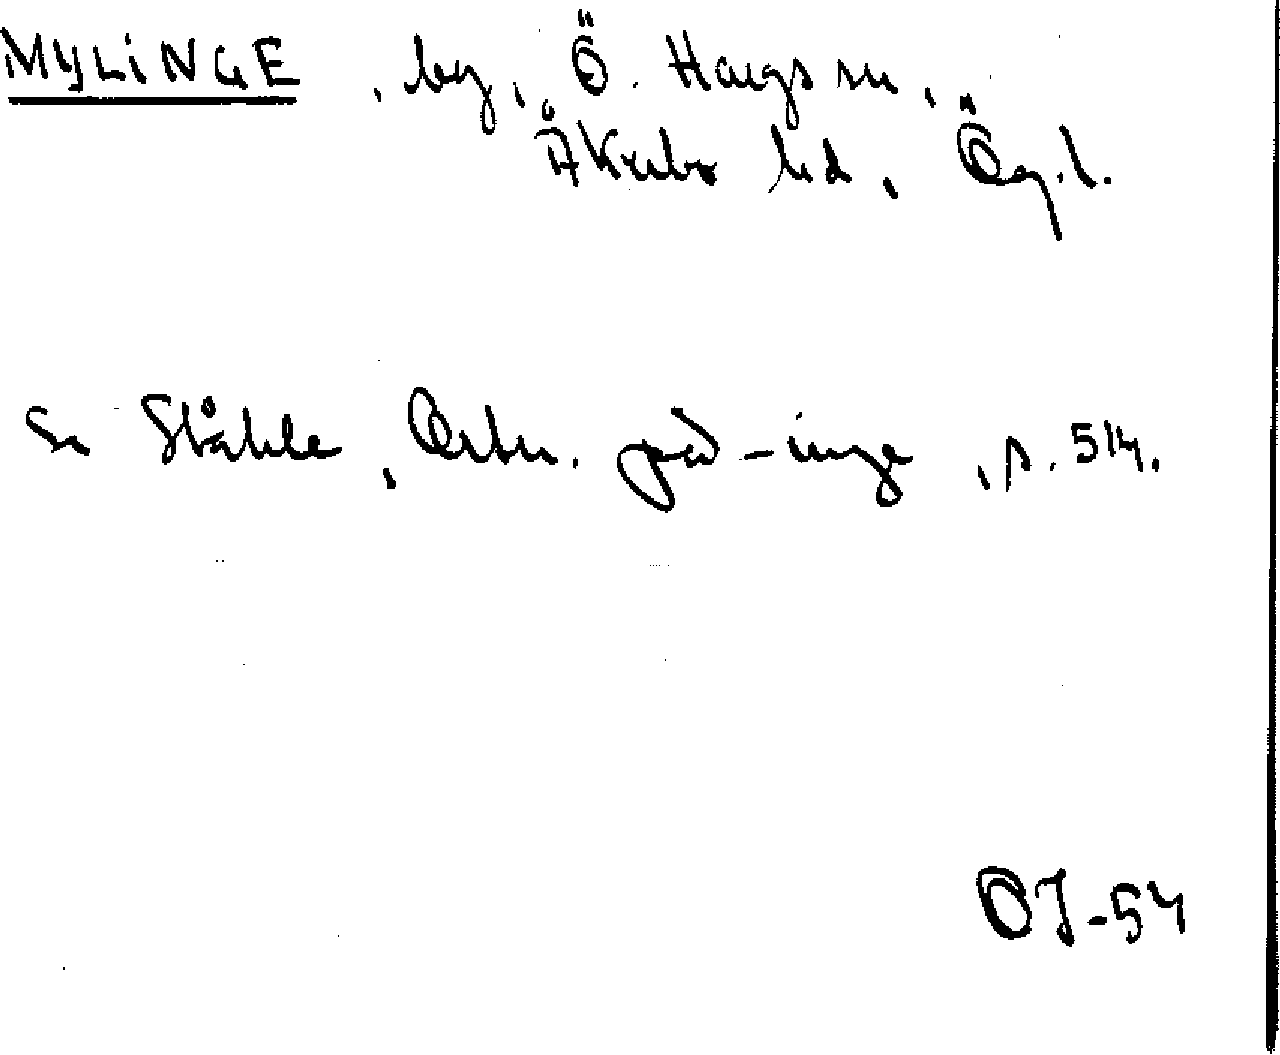 MYLINGE, by, Ö. Hargs sn,
Åkerbo hd, Ög.l.
Se Ståhle, Ortn. på -inge, s. 514.
OJ-54